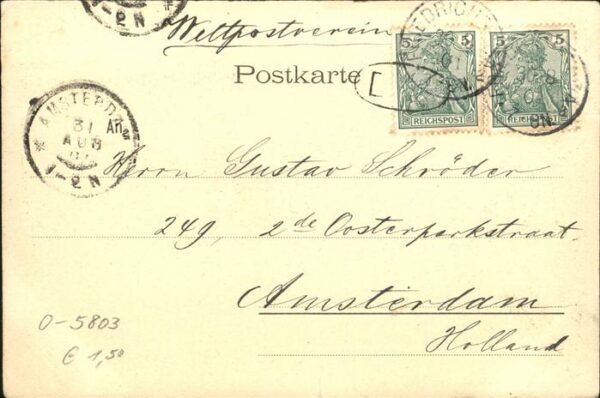 1-2 N
Weltpostverein
Postkarte
5 5
5 5
REICHSPOST
REICHSPOST
FRIEDRICHS
AMSTERDAM
31
AUG
1-2 N
An
Herrn Gustav Schröder
249, 2de Oosterparkstraat
Amsterdam
Holland
0-5803
€ 1,50